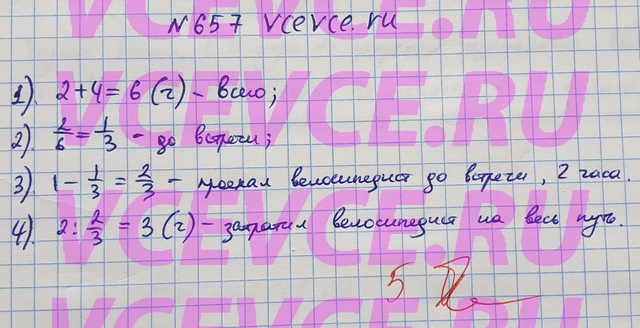 №657 vcevce.ru
1). 2+4=6 (ч) - всего;
2). 2/6 = 1/3 - до встречи;
3). 1 - 1/3 = 2/3 - проехал велосипедист до встречи, 2 часа.
4). 2 : 2/3 = 3 (ч) - затратил велосипедист на весь путь.
5
VCEVCE.RU
VCEVCE.RU
VCEVCE.RU